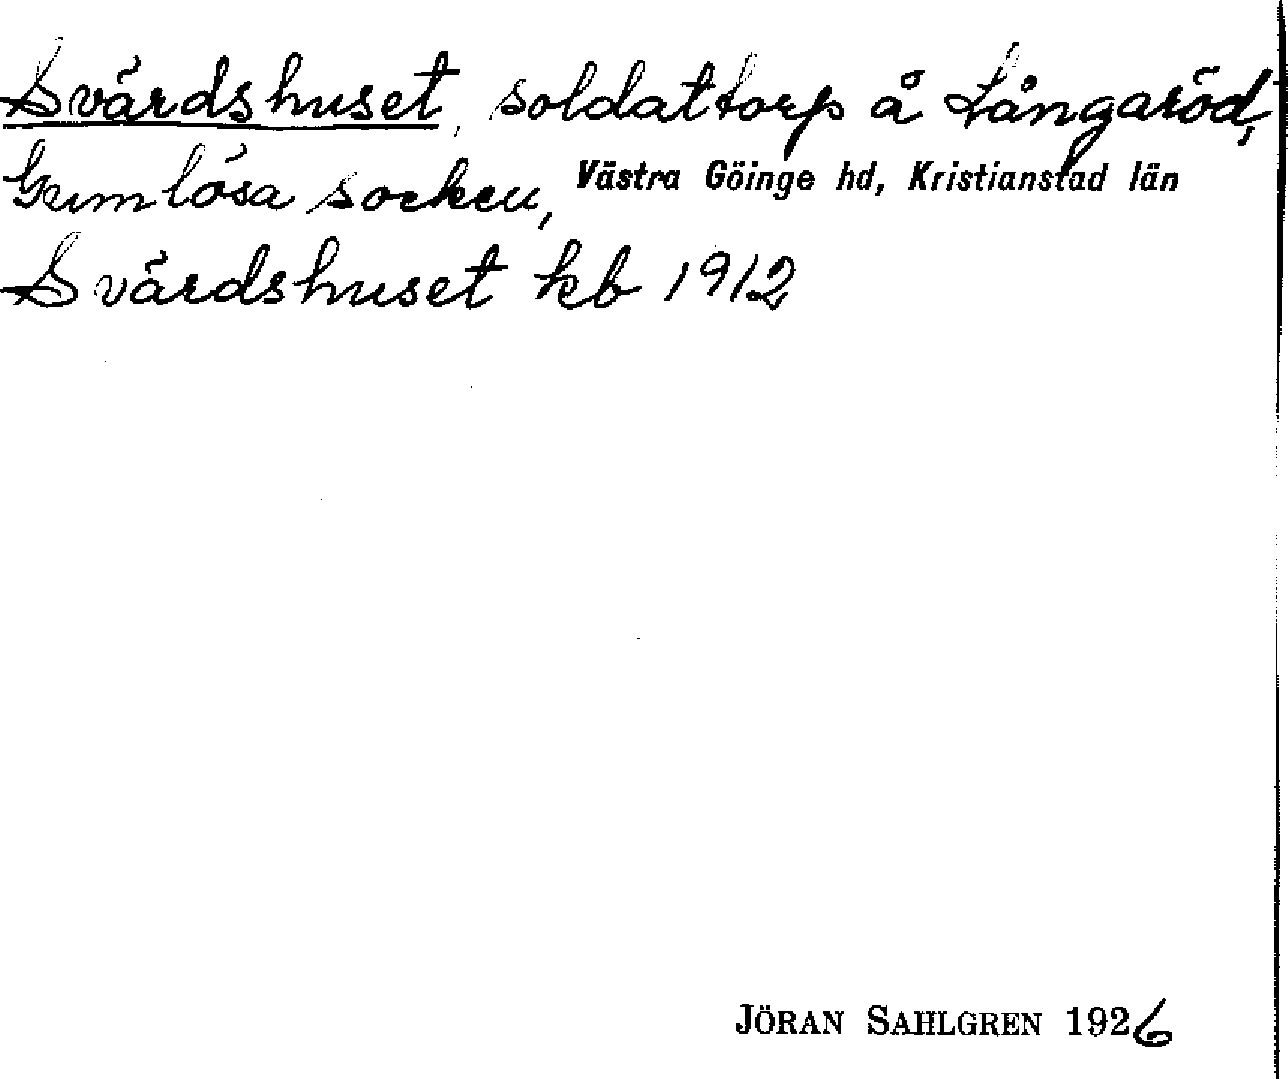 Svärdshuset, soldattorp å Långaröd,
Gumlösa socken, Västra Göinge hd, Kristianstad län
Svärdshuset kb 1912
JÖRAN SAHLGREN 1926